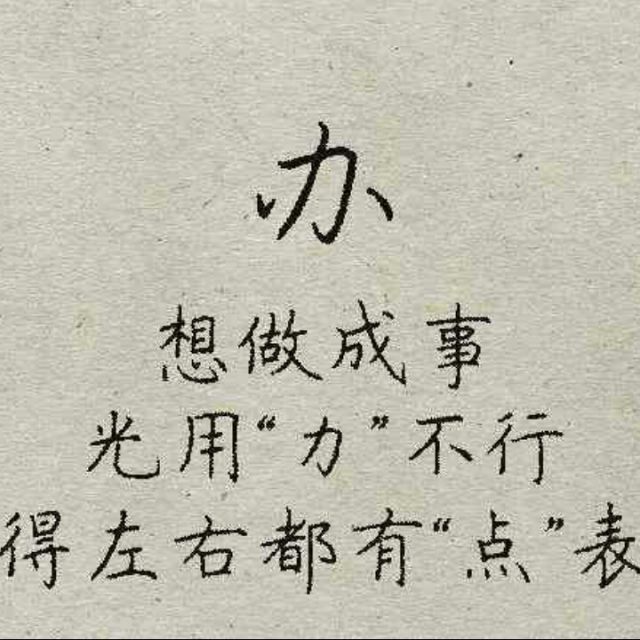 办
想做成事
光用“力”不行
得左右都有“点”表